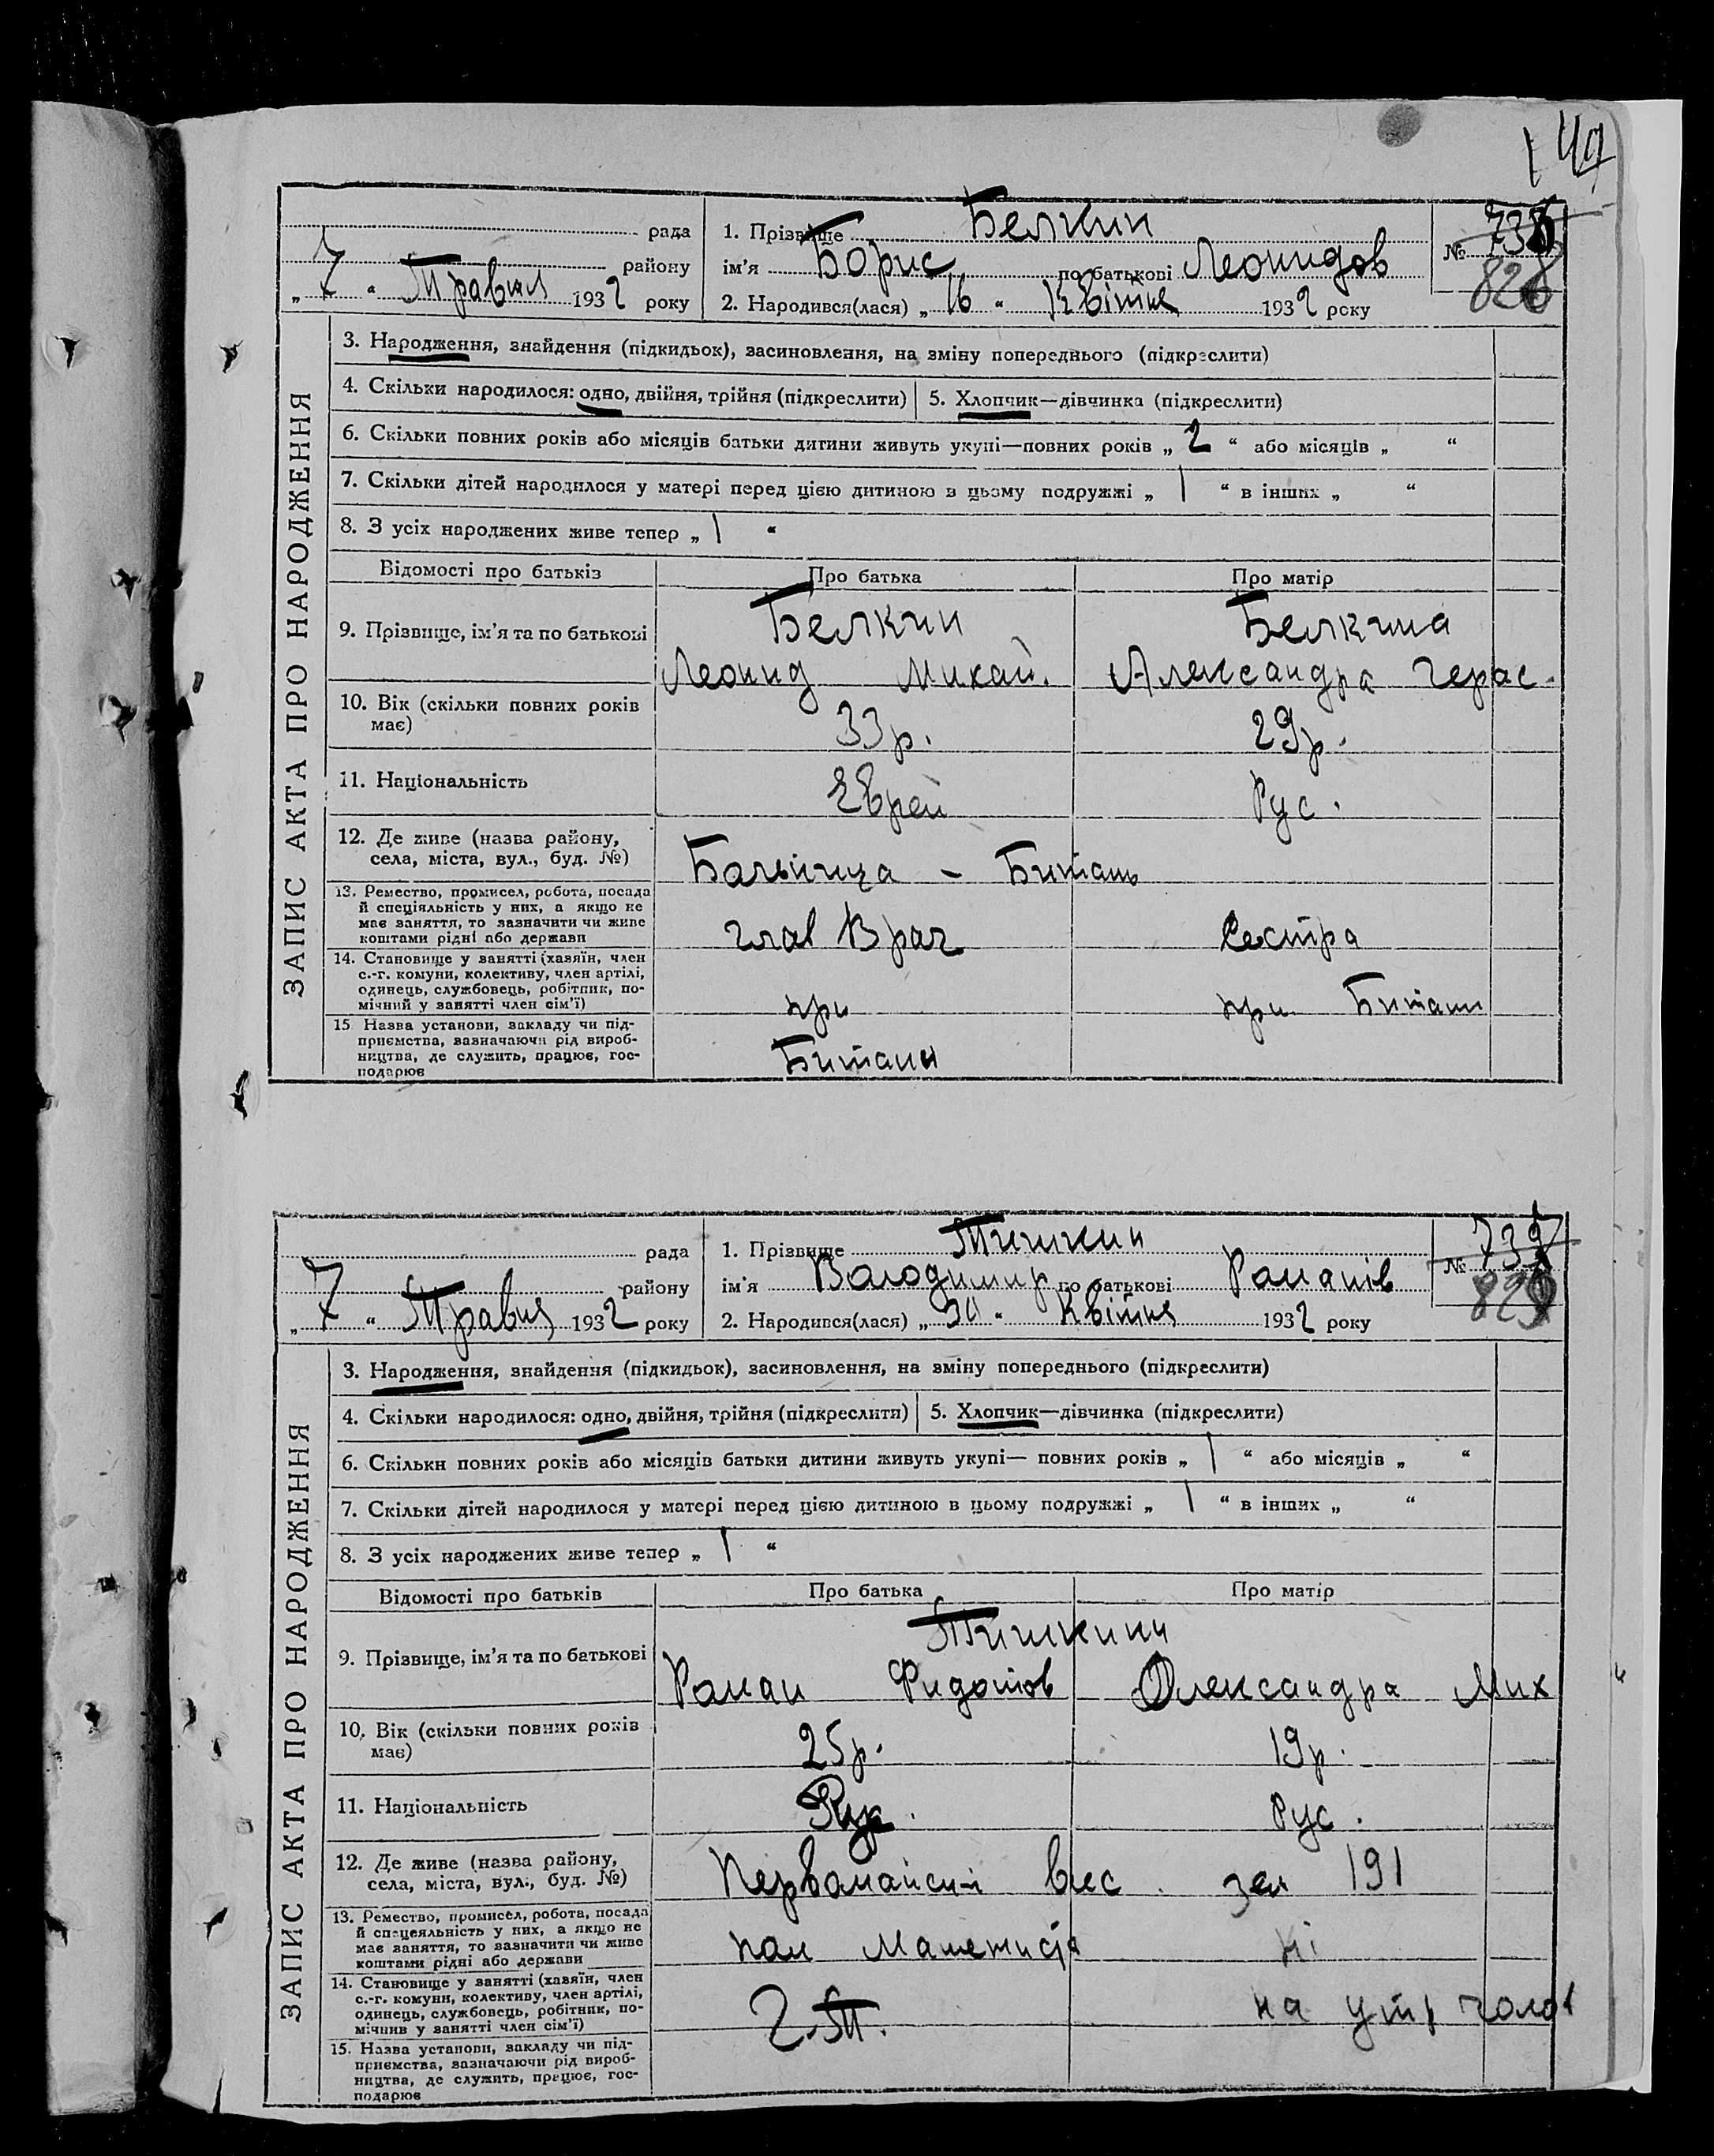 149
рада
району
„ 7 “ Травня 1932 року
1. Прізвище Белкин
ім'я Борис по батькові Леонидов
2. Народився(лася) „ 16 “ Квітня 1932 року
№
828
ЗАПИС АКТА ПРО НАРОДЖЕННЯ
3. Народження, знайдення (підкидьок), засиновлення, на зміну попереднього (підкреслити)
4. Скільки народилося: одно, двійня, трійня (підкреслити) 5. Хлопчик—дівчинка (підкреслити)
6. Скільки повних років або місяців батьки дитини живуть укупі—повних років „ 2 “ або місяців „ “
7. Скільки дітей народилося у матері перед цією дитиною в цьому подружжі „ 1 “ в інших „ “
8. З усіх народжених живе тепер „ 1 “
Відомості про батьків Про батька Про матір
9. Прізвище, ім'я та по батькові
Белкин Белкина
Леонид Михай. Александра Герас.
10. Вік (скільки повних років
має)
33р. 29р.
11. Національність Еврей Рус.
12. Де живе (назва району,
села, міста, вул., буд. №)
Больница –
13. Ремество, промисел, робота, посада
й спеціяльність у них, а якщо не
має заняття, то зазначити чи живе
коштами рідні або держави
глав Врач Сестра
14. Становище у занятті (хазяїн, член
с.-г. комуни, колективу, член артілі,
одинець, службовець, робітник, по-
мічний у занятті член сім'ї)
при при
15 Назва установи, закладу чи під-
приємства, зазначаючи рід вироб-
ництва, де служить, працює, гос-
подарює
рада
району
„ 7 “ Травня 1932 року
1. Прізвище Тишкин
ім'я Володимир по батькові Романів
2. Народився(лася) „ 30 “ Квітня 1932 року
№
829
ЗАПИС АКТА ПРО НАРОДЖЕННЯ
3. Народження, знайдення (підкидьок), засиновлення, на зміну попереднього (підкреслити)
4. Скільки народилося: одно, двійня, трійня (підкреслити) 5. Хлопчик—дівчинка (підкреслити)
6. Скільки повних років або місяців батьки дитини живуть укупі— повних років „ 1 “ або місяців „ “
7. Скільки дітей народилося у матері перед цією дитиною в цьому подружжі „ 1 “ в інших „ “
8. З усіх народжених живе тепер „ 1 “
Відомості про батьків Про батька Про матір
9. Прізвище, ім'я та по батькові
Тишкини
Роман Фидотов Олександра Мих
10. Вік (скільки повних років
має)
25р. 19р.
11. Національність Рус.
12. Де живе (назва району,
села, міста, вул., буд. №)
зем 191
13. Ремество, промисел, робота, посада
й спецеяльність у них, а якщо не
має заняття, то зазначити чи живе
коштами рідні або держави
пом Машениста ні
14. Становище у занятті (хазяїн, член
с.-г. комуни, колективу, член артілі,
одинець, службовець, робітник, по-
мічнив у занятті член сім'ї)
на утр чолов
15. Назва установи, закладу чи під-
приємства, зазначаючи рід вироб-
ництва, де служить, працює, гос-
подарює